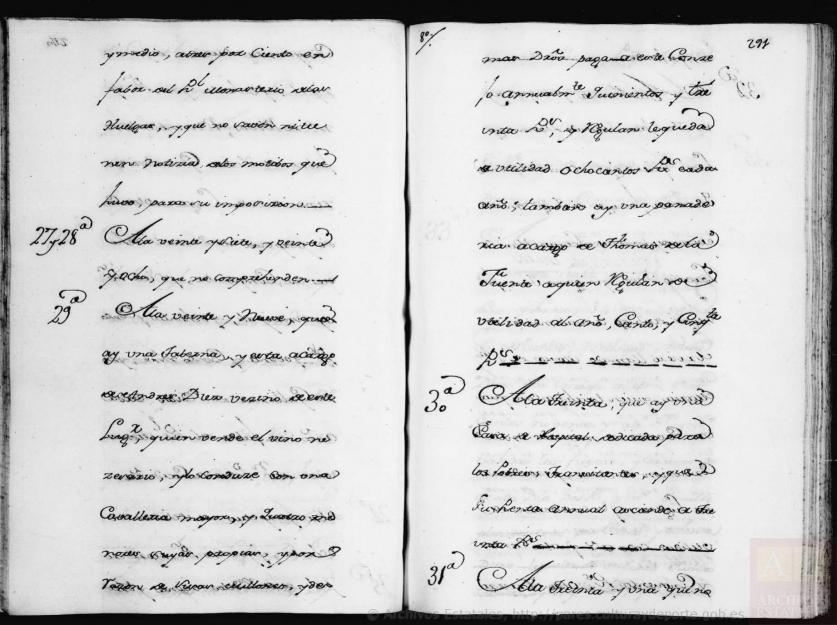 y medio, a tres por Ciento en
fabor del Rl Monasterio de las
Huelgas, y que no saven ni tie
nen notizia de los motibos que
huvo, para su imposizion
27 y 28ª A la veinte y siete, y veinte
y ocho, que no comprehenden
29ª A la veinte y Nueve, que
ay una taberna, y esta a cargo
de Andres Diez vezino de este
Lugr, quien vende el vino ne
zesario, y lo conduze con una
Cavalleria mayor, y quatro me
nores suyas propias, y por
razon de sisas, millones, y de
80/. 291
mas Dros paga a este Conze
jo annualmte Quinientos y tre
inta Rs, y Regulan le queda
de utilidad ochozientos Rs cada
año; tambien ay una panade
ria a cargo de Thomas de la
Fuente a quien Regulan de
utilidad al año, Ciento, y Cinqta
Rs
30ª A la treinta, que ay una
Casa de Hospital dedicada para
los Pobres, transitantes, y que
su Renta annual asciende a tre
inta Rs
31ª A la treinta y una que no
© Archivos Estatales, http://pares.culturaydeporte.gob.es
A
ARCHIVOS
ESTATALES